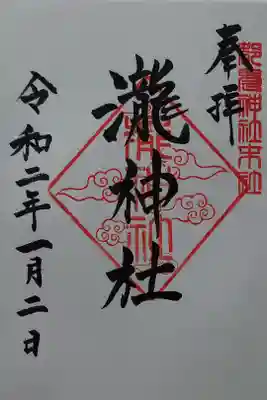 奉拝
都農神社末社
瀧神社
瀧神社
令和二年一月二日